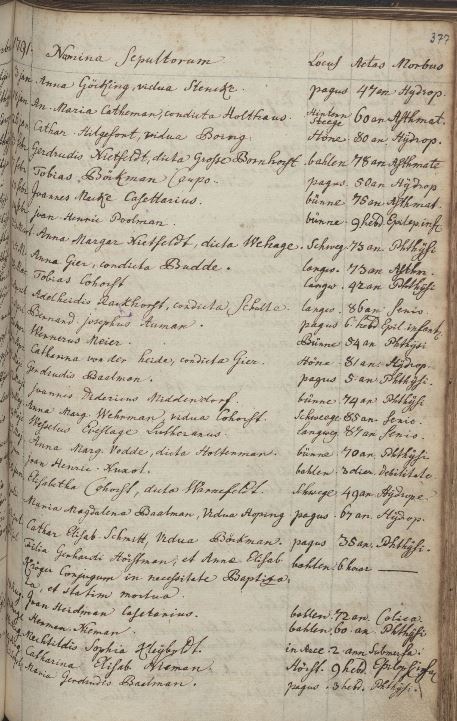 377
1791. Nomina Sepultorum Locus Aetas Morbus
Anna Göcking, vidua Stencke. pagus 47 an Hydrop.
An. Maria Catheman, condicta Holthaus. Hintern Steege 60 an Asthmat.
Cathar Hilgefont, vidua Boing. Höne 80 an Hydrop.
Gerdrudis Nietfeldt, dicta Grosse Bornhorst bahlen 76 an Asthmate
Tobias Börkman Caupo. pagus. 50 an Hydrop
Joannes Macke Casettarius. bünne 75 an Asthmat.
Joan Henric Poolman. bünne. 9 hebd Epilep inf.
Anna Margar Nietfeldt, dicta Wehage. Schweg. 73 an. Phthysi
Anna Gier, condicta Budde. langw. 73 an Asthm.
Tobias Cohorst langw. 42 an Phthysi
Adelheidis condicta Schulte. langw. 86 an Senio.
Bernand Josephus Auman. pagus 6 hebd Epil. infant.
Wennerus Meier. Bünne 54 an Phthysi
Catharina von der heide, condicta Gier. Höne 81 an. Hydrop.
Gerdrudis Baelman. pagus 5 an Phthysi.
Joannes Didericus Middendorf. bünne 74 an Phthysi.
Anna Marg. Wehrman, vidua Cohorst. Schwege 85 an Senio.
Wesselus Lutheranus. langweg 87 an Senio.
Anna Marg Vodde, dicta Holterman. bünne 70 an. Phthysi.
Joan Henric bahlen 3 dier. debilitate.
Elisabetha Cohorst, dicta Wannefeldt. Schwege. 49 an. Hydrope
Maria Magdalena Baelman, Vidua Hoping pagus 67 an. Hydrop.
Cathar Elisab Schmitt, vidua Börkman. pagus 35 an. Phthysi.
Filia Gerhardi et Annae Elisab bahlen. 6 hoar
Kröger Conjugum in necessitate Baptiza
ta, et statim mortua
Joan Herdman Casetarius. bahlen. 72 an. Colica
Herman Nieman. bahlen. 60 an. Phthysi
Mechtildis Sophia in 2 ann Submersa.
Catharina Elisab Nieman. Höist. 9 hebd. Epileps infa
Maria Gerdrudis Baelman. pagus. 3 hebd. Phthysi.